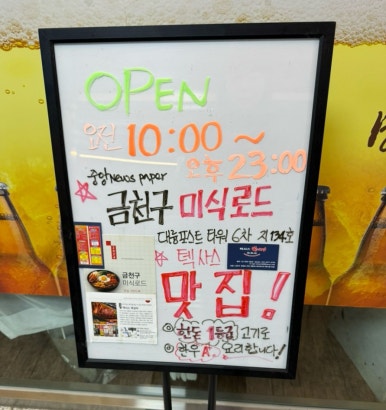 OPEN
오전 10:00 ~
오후 23:00
중앙News paper
금천구 미식로드
대륭포스트 타워 6차 지134호
텍사스
맛집!
한돈 1등급 고기로
한우 A 요리합니다!
금천구
미식로드